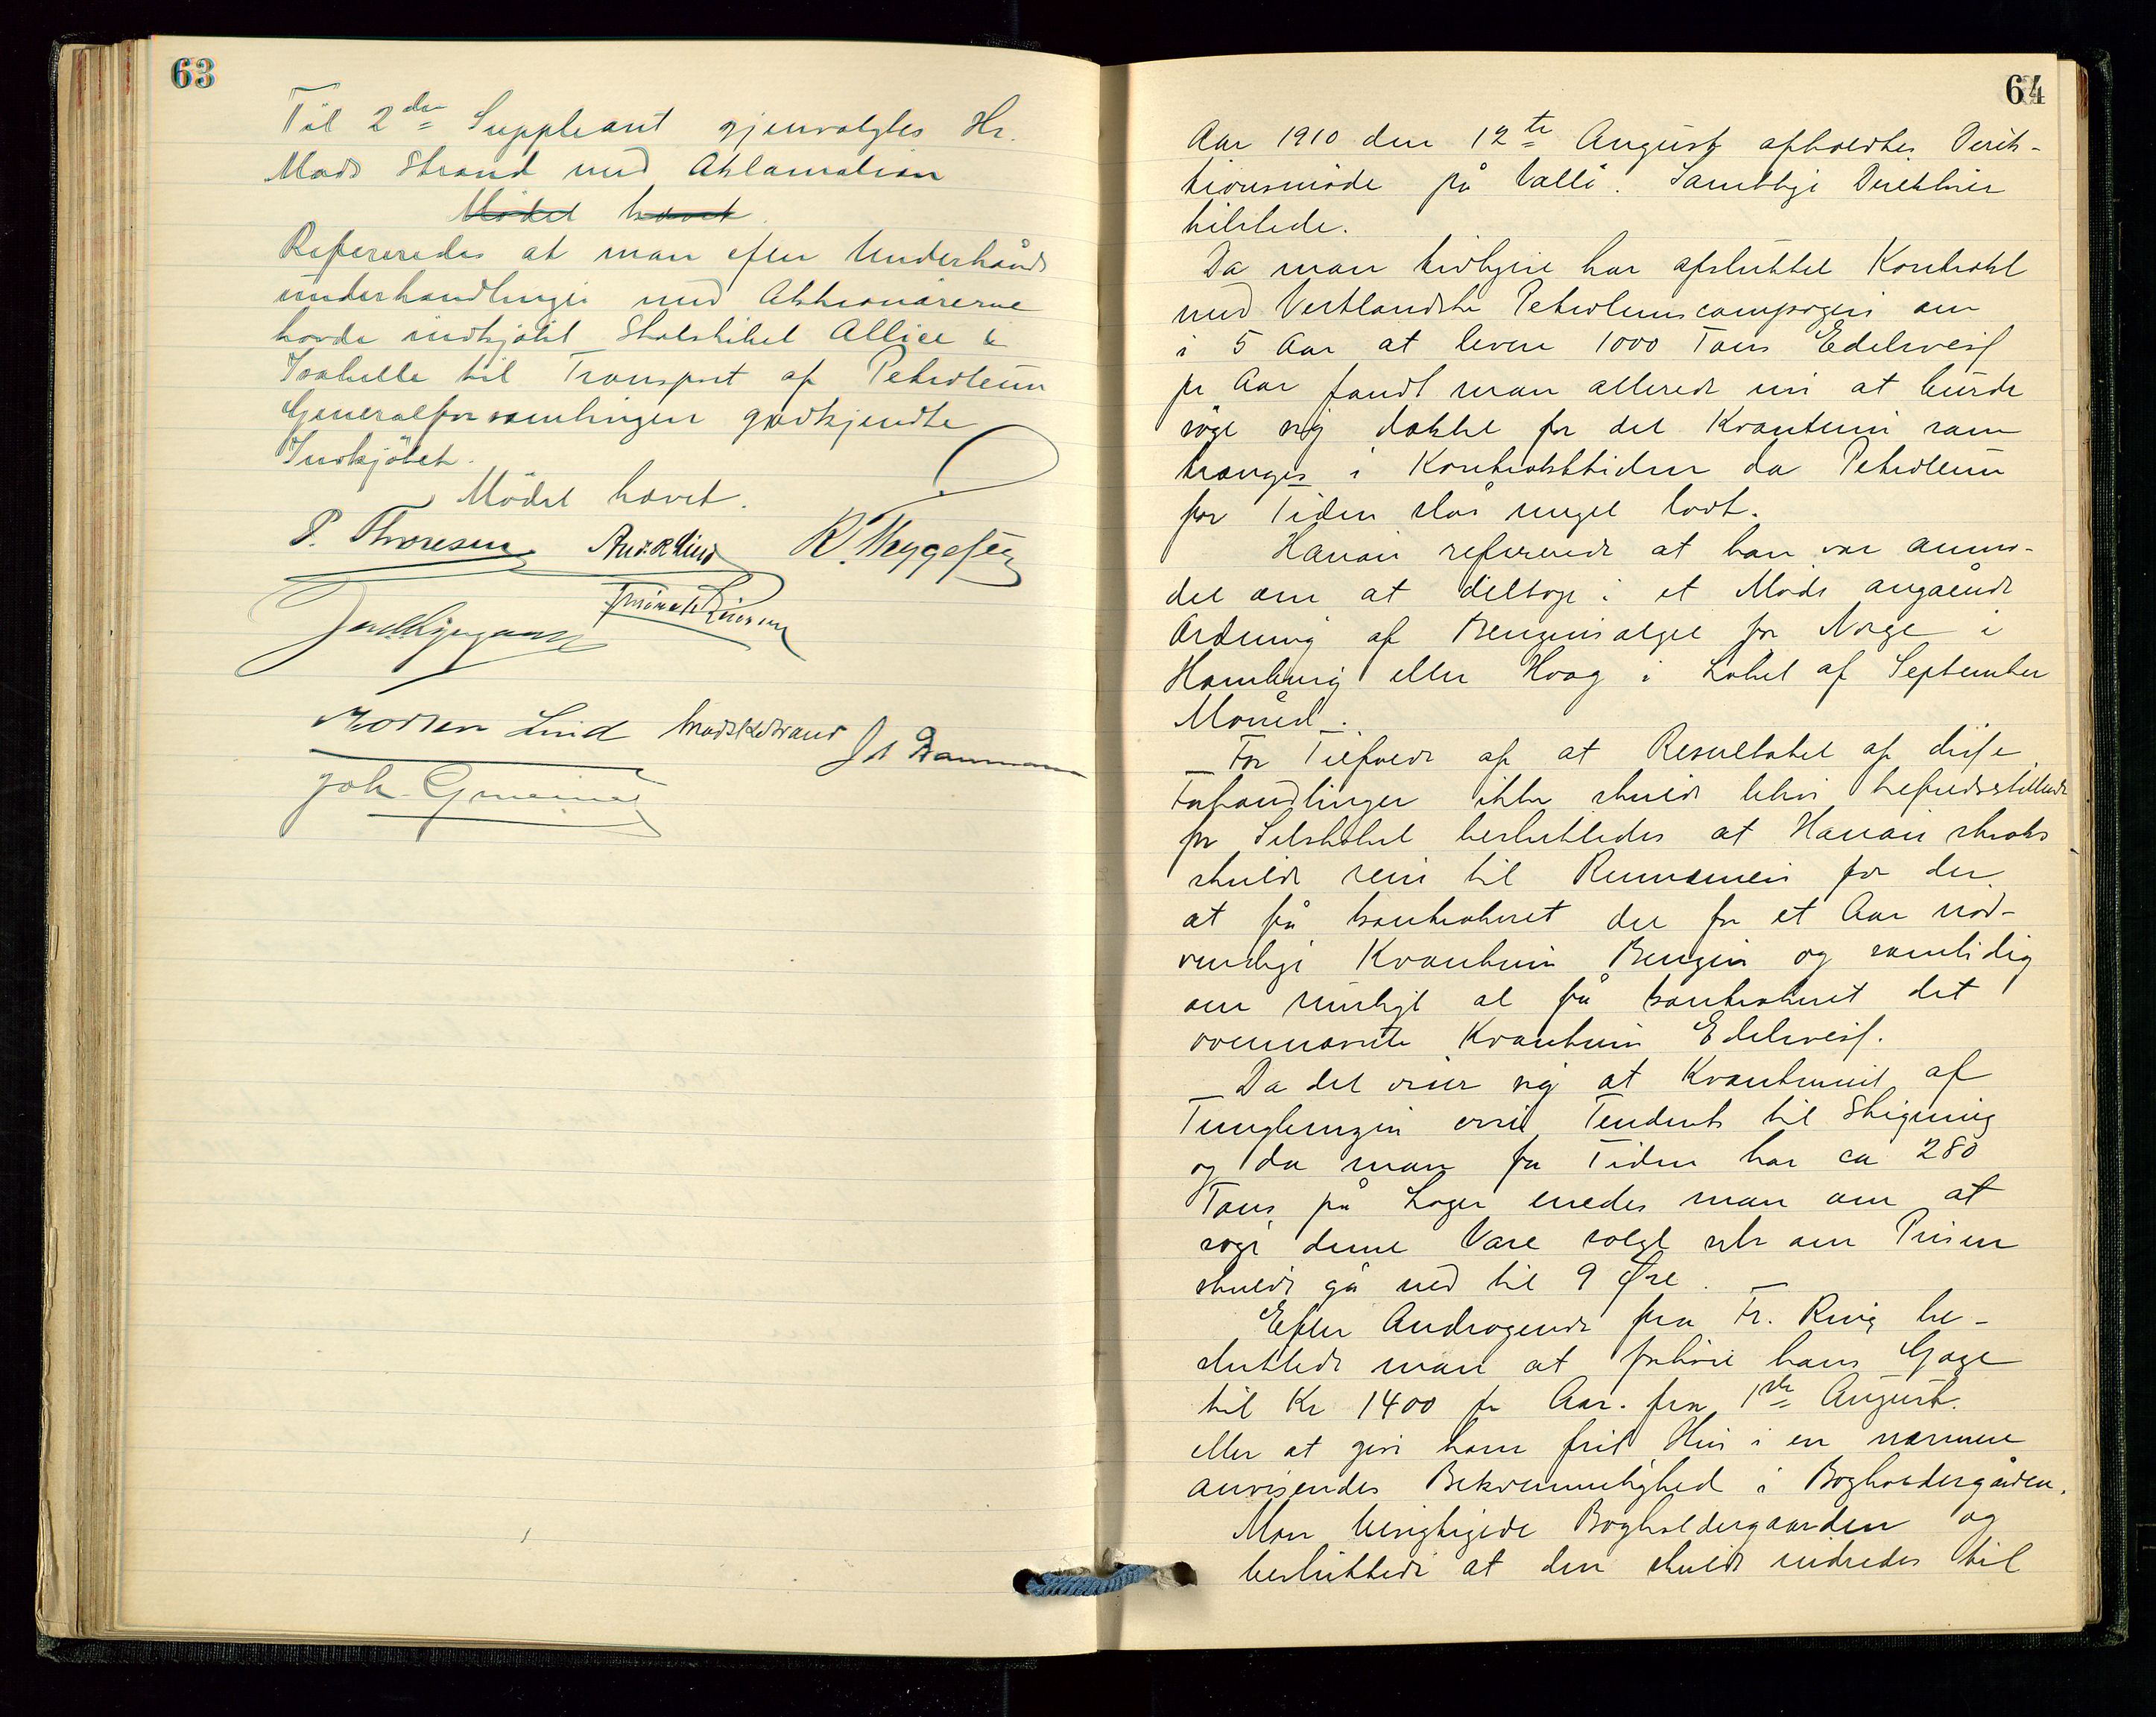 63
Til 2den Suppleant gjenvalgtes Hr.
Mads Strand med Aklamation
Mødet hævet.
Refereredes at man efter Underhånds
underhandlinger med Aktionærerne
havde indkjøbt Skibet Allice &
Isabelle til Transport af Petroleum
Generalforsamlingen godkjendte
Indkjøbet.
Mødet hævet.
P. Thoresen And. R Lind R. Theggesen
Morten Lind Mads K Strand
Joh. G
64
Aar 1910 den 12te August afholdtes Direk-
tionsmøde på Vallö. Samtlige Direktører
tilstede.
Da man tidligere har afsluttet Kontrakt
med Vestlandske Petroleumscompagni om
i 5 Aar at levere 1000 Tons Edelweiss
pr Aar fandt man allerede nu at burde
søge sig dækket for det Kvantum som
trænges i Kontrakttiden da Petroleum
for Tiden står meget lavt.
Hanau refererede at han var anmo-
det om at deltage i et Møde angående
Ordning af Benzinsalget for Norge i
Hamburg eller Haag i Løbet af September
Måned.
For Tilfælde af at Resultatet af disse
Forhandlinger ikke skulde blive tilfredsstillende
for Selskabet besluttedes at Hanau straks
skulde reise til Rumænien for der
at få kontraheret det for et Aar nød-
vendige Kvantum Benzin og samtidig
om muligt at få kontraheret det
ovennævnte Kvantum Edelweiss.
Da det viser sig at Kvantumet af
Tungbenzin viser Tendents til Stigning
og da man for Tiden har ca 280
Tons på Lager enedes man om at
søge denne Vare solgt selv om Prisen
skulde gå ned til 9 Øre.
Efter Andragende fra Fr. Ring be-
sluttede man at forhøie hans Gage
til Kr 1400 pr Aar. fra 1ste August.
eller at give ham frit Hus i en nærmere
anvisendes Bekvemmelighed i Bogholdergården.
Man besigtigede Bogholdergaarden og
besluttede at den skulde indredes til